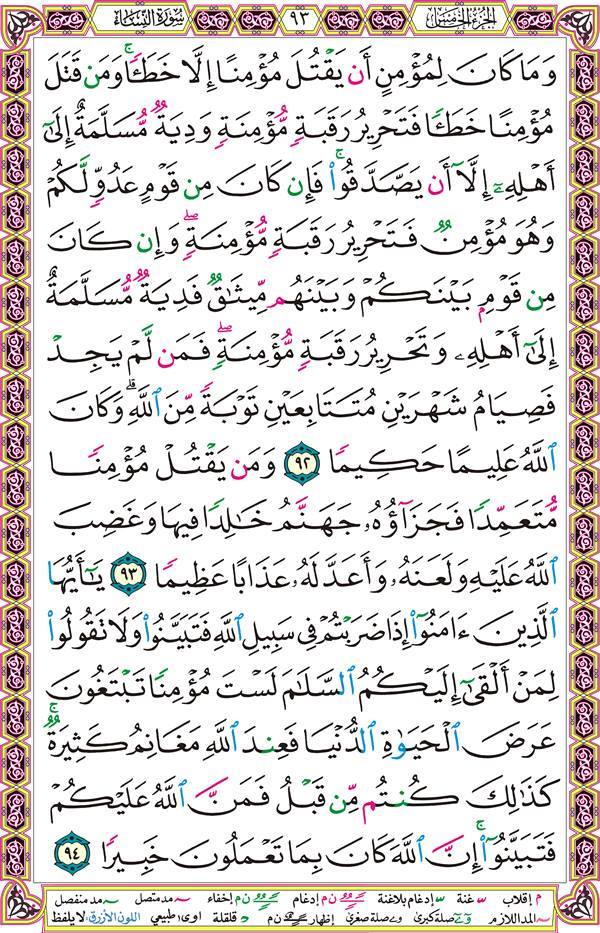 الجزء الخامس ٩٣ سورة النساء
وَمَا كَانَ لِمُؤْمِنٍ أَن يَقْتُلَ مُؤْمِنًا إِلَّا خَطَـًٔا ۚ وَمَن قَتَلَ
مُؤْمِنًا خَطَـًٔا فَتَحْرِيرُ رَقَبَةٍ مُّؤْمِنَةٍ وَدِيَةٌ مُّسَلَّمَةٌ إِلَىٰٓ
أَهْلِهِۦٓ إِلَّآ أَن يَصَّدَّقُوا۟ ۚ فَإِن كَانَ مِن قَوْمٍ عَدُوٍّ لَّكُمْ
وَهُوَ مُؤْمِنٌ فَتَحْرِيرُ رَقَبَةٍ مُّؤْمِنَةٍ ۖ وَإِن كَانَ
مِن قَوْمٍۭ بَيْنَكُمْ وَبَيْنَهُم مِّيثَـٰقٌ فَدِيَةٌ مُّسَلَّمَةٌ
إِلَىٰٓ أَهْلِهِۦ وَتَحْرِيرُ رَقَبَةٍ مُّؤْمِنَةٍ ۖ فَمَن لَّمْ يَجِدْ
فَصِيَامُ شَهْرَيْنِ مُتَتَابِعَيْنِ تَوْبَةً مِّنَ ٱللَّهِ ۗ وَكَانَ
ٱللَّهُ عَلِيمًا حَكِيمًا ٩٢ وَمَن يَقْتُلْ مُؤْمِنًا
مُّتَعَمِّدًا فَجَزَآؤُهُۥ جَهَنَّمُ خَـٰلِدًا فِيهَا وَغَضِبَ
ٱللَّهُ عَلَيْهِ وَلَعَنَهُۥ وَأَعَدَّ لَهُۥ عَذَابًا عَظِيمًا ٩٣ يَـٰٓأَيُّهَا
ٱلَّذِينَ ءَامَنُوٓا۟ إِذَا ضَرَبْتُمْ فِى سَبِيلِ ٱللَّهِ فَتَبَيَّنُوا۟ وَلَا تَقُولُوا۟
لِمَنْ أَلْقَىٰٓ إِلَيْكُمُ ٱلسَّلَـٰمَ لَسْتَ مُؤْمِنًا تَبْتَغُونَ
عَرَضَ ٱلْحَيَوٰةِ ٱلدُّنْيَا فَعِندَ ٱللَّهِ مَغَانِمُ كَثِيرَةٌ ۚ
كَذَٰلِكَ كُنتُم مِّن قَبْلُ فَمَنَّ ٱللَّهُ عَلَيْكُمْ
فَتَبَيَّنُوٓا۟ ۚ إِنَّ ٱللَّهَ كَانَ بِمَا تَعْمَلُونَ خَبِيرًا ٩٤
م إقلاب غنة إدغام بلاغنة ن م إدغام إخفاء مد متصل مد منفصل
المد اللازم صلة كبرى صلة صغرى إظهار ن م قلقلة اوى طبيعي اللون الأزرق: لا يلفظ